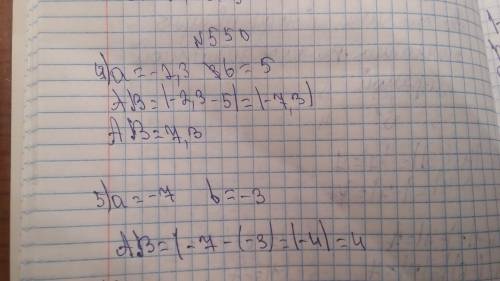 №550
4) a = -2,3 b = 5
AB = |-2,3 - 5| = |-7,3|
AB = 7,3
5) a = -7 b = -3
AB = |-7 - (-3) = |-4| = 4